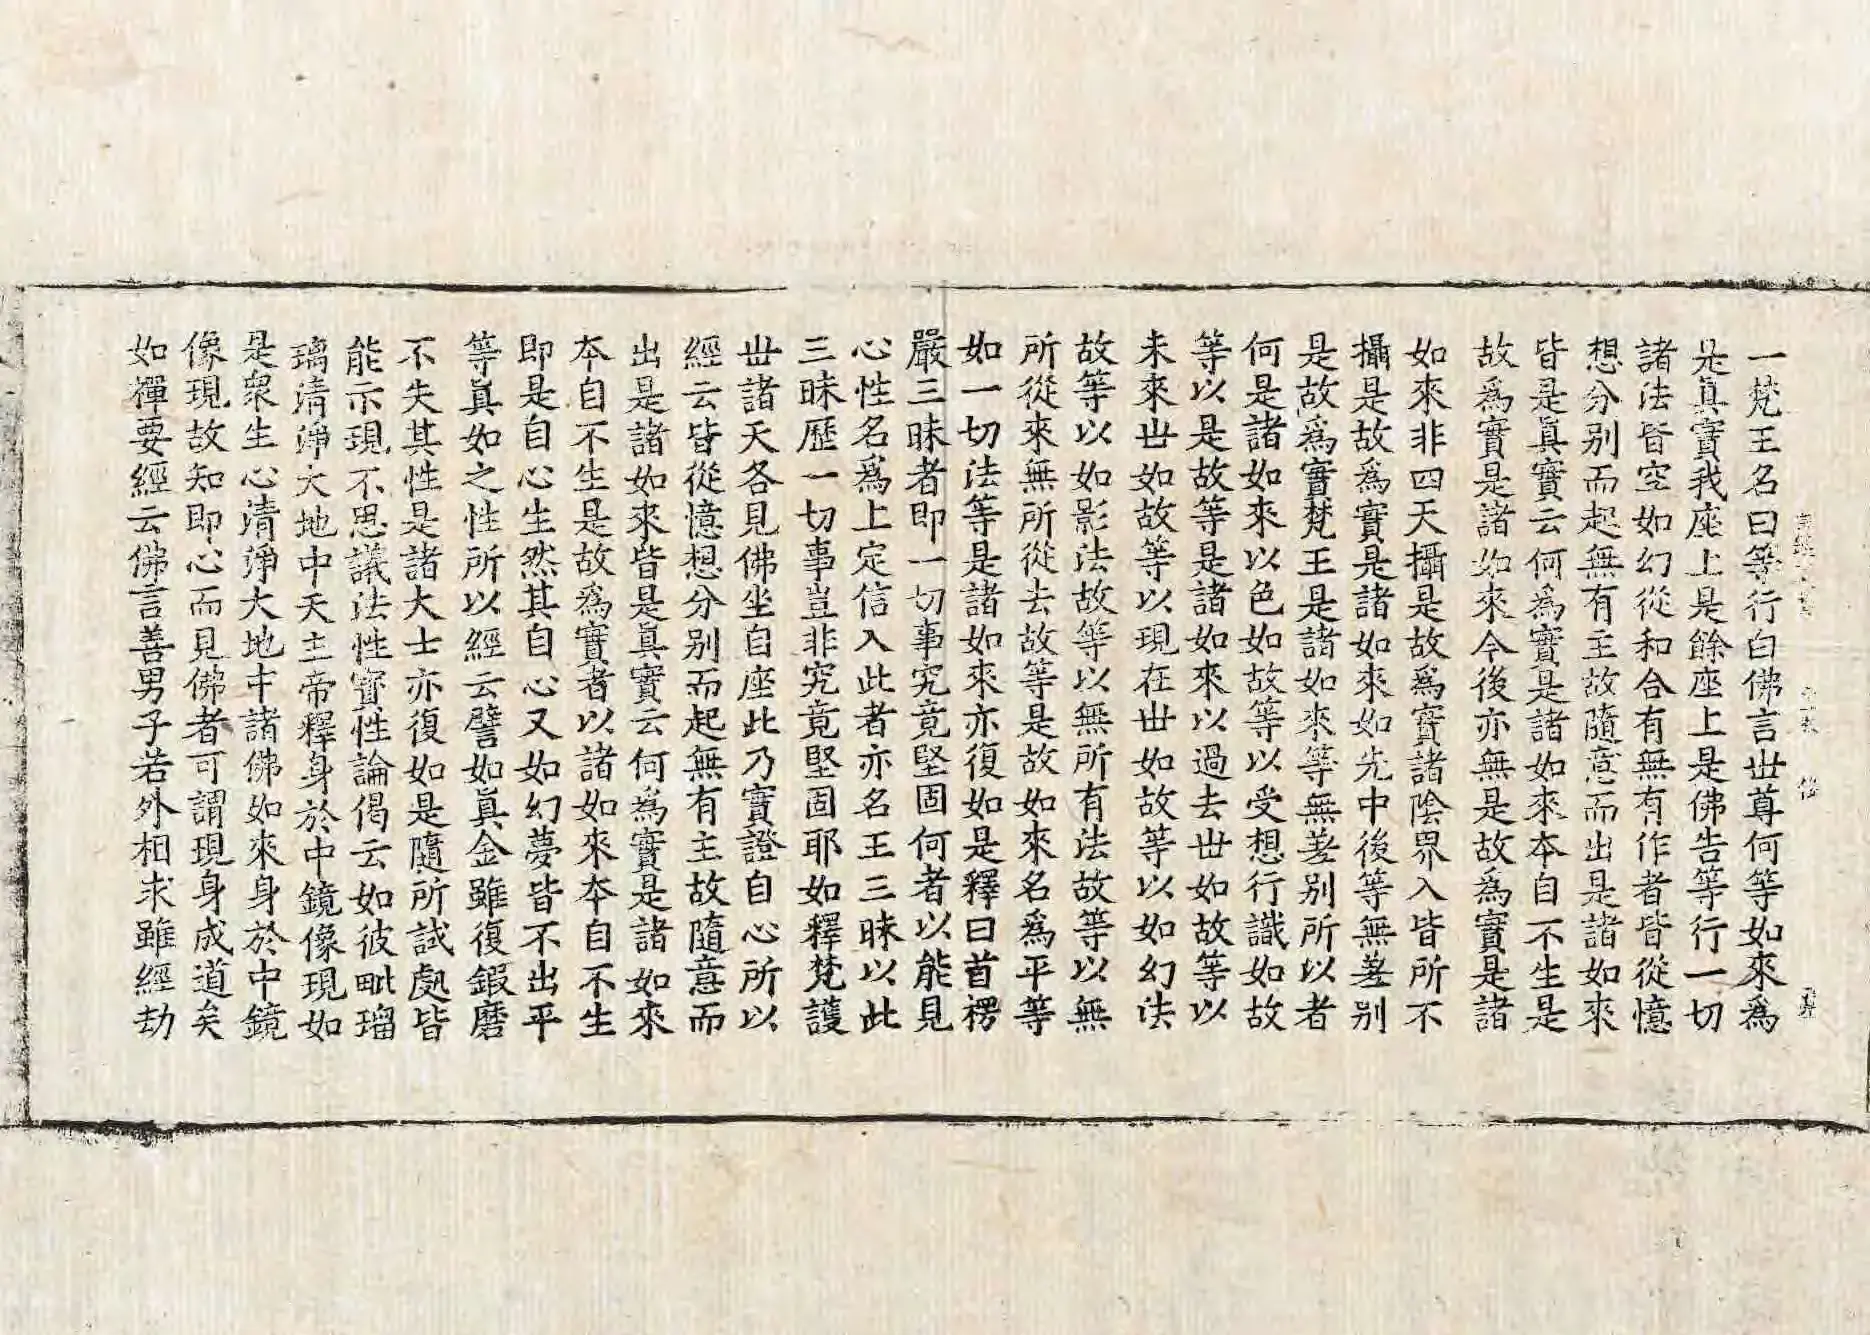 一梵王名曰等行白佛言世尊何等如來爲
是真實我座上是餘座上是佛告等行一切
諸法皆空如幻從和合有無有作者皆從憶
想分别而起無有主故隨意而出是諸如來
皆是眞實云何爲實是諸如來本自不生是
故爲實是諸如來今後亦無是故爲實是諸
如來非四天攝是故爲實諸陰界入皆所不
攝是故爲實是諸如來如先中後等無差别
是故爲實梵王是諸如來等無差别所以者
何是諸如來以色如故等以受想行識如故
等以是故等是諸如來以過去世如故等以
未來世如故等以現在世如故等以如幻法
故等以如影法故等以無所有法故等以無
所從來無所從去故等是故如來名爲平等
如一切法等是諸如來亦復如是釋曰首楞
嚴三昧者即一切事究竟堅固何者以能見
心性名爲上定信入此者亦名王三昧以此
三昧歷一切事豈非究竟堅固耶如釋梵護
世諸天各見佛坐自座此乃實證自心所以
經云皆從憶想分别而起無有主故隨意而
出是諸如來皆是眞實云何爲實是諸如來
本自不生是故爲實者以諸如來本自不生
即是自心生然其自心又如幻夢皆不出平
等眞如之性所以經云譬如眞金雖復鍛磨
不失其性是諸大士亦復如是隨所試處皆
能示現不思議法性寳性論偈云如彼毗瑠
璃清淨大地中天主帝釋身於中鏡像現如
是衆生心清淨大地中諸佛如來身於中鏡
像現故知即心而見佛者可謂現身成道矣
如禪要經云佛言善男子若外相求雖經劫